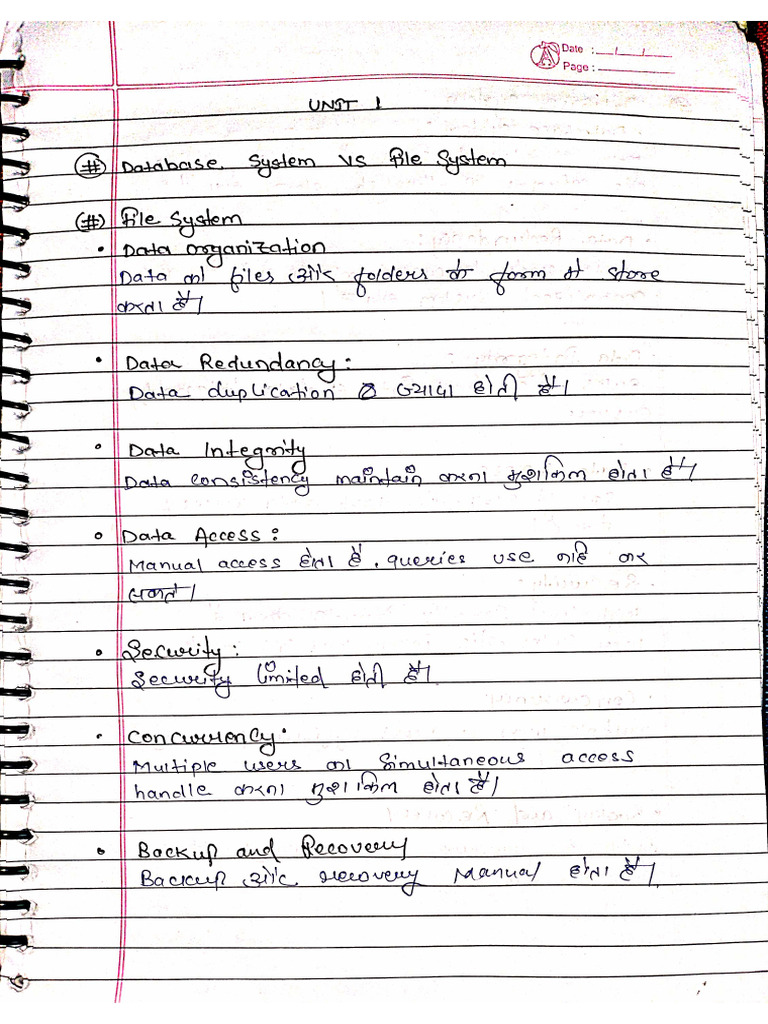 Date :
Page :
UNIT 1
(#) Database System vs File System
(#) File System
• Data organization
Data को files और folders के form में store
करता है।
• Data Redundancy :
Data duplication ज्यादा होती है।
• Data Integrity
Data consistency maintain करना मुशकिल होता है।
• Data Access :
Manual access होता है, queries use नहि कर
सकते।
• Security :
Security limited होती है।
• Concurrency :
Multiple users का simultaneous access
handle करना मुशकिल होता है।
• Backup and Recovery
Backup और recovery Manual होता है।